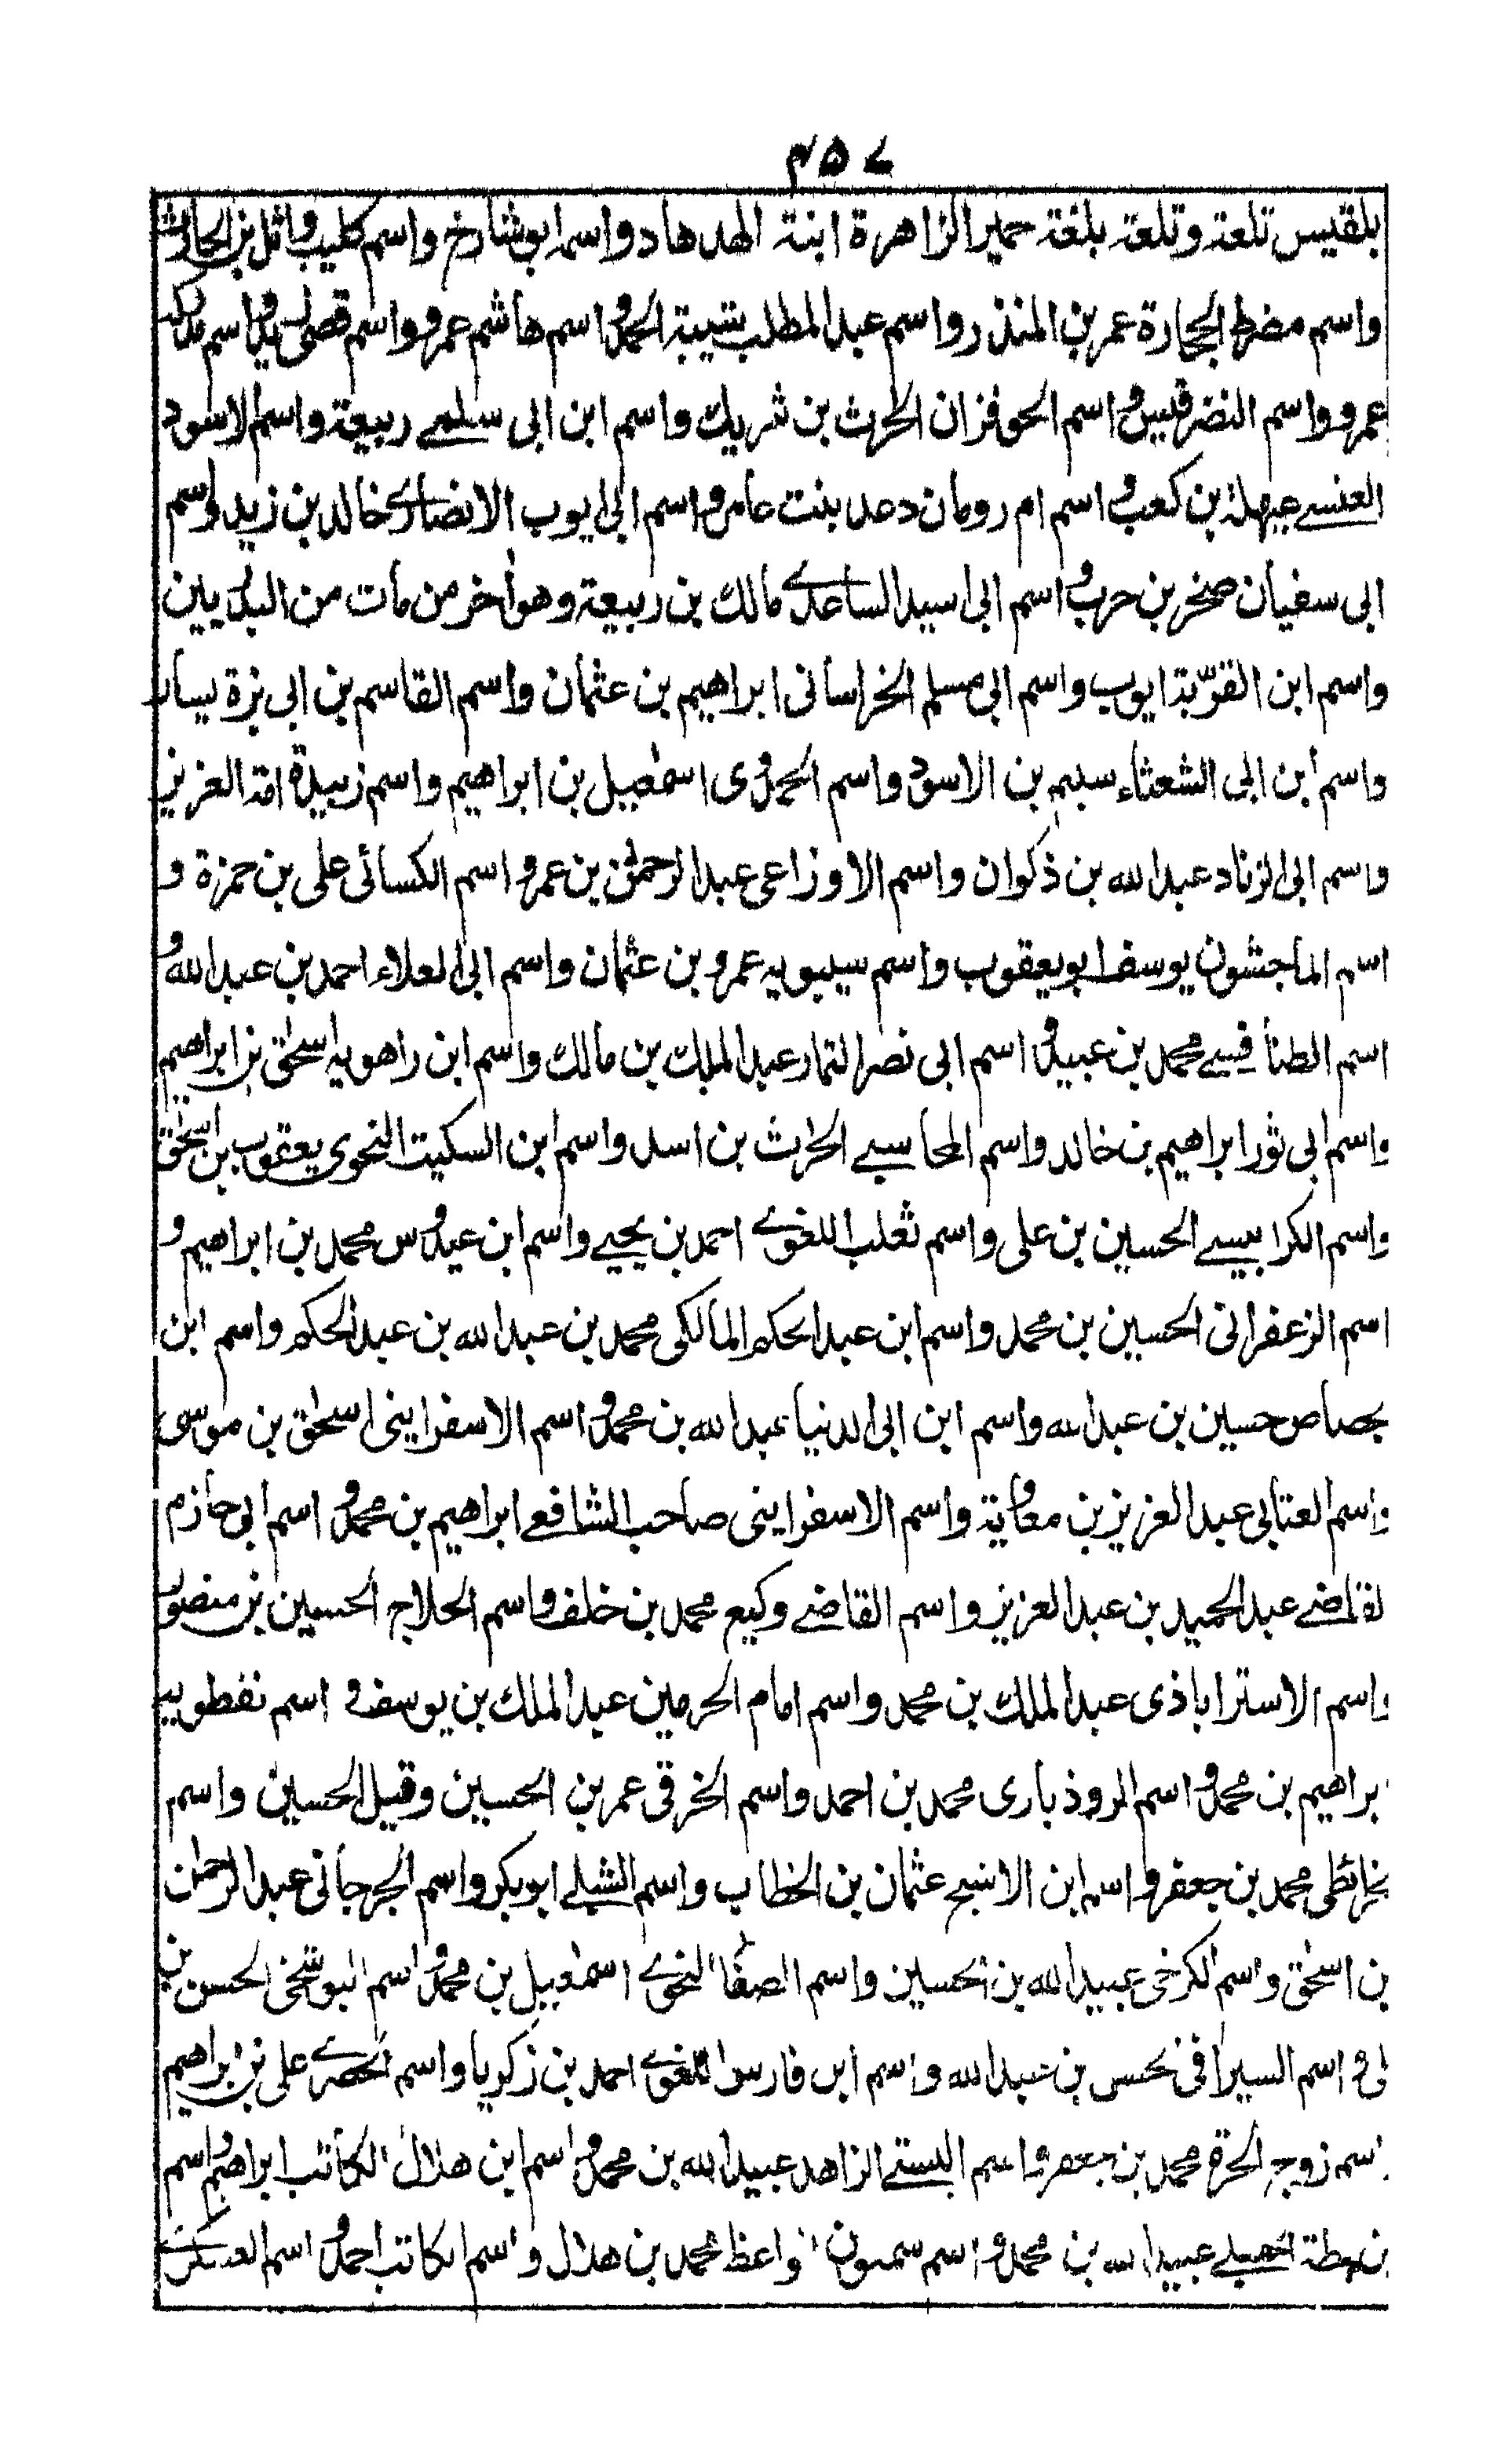 ٤٥٧
بلقيس تلعة وتلعة بلغة حمير الزاهرة ابنة الهدهاد واسم ابو شارخ واسم كليب وائل بن الحارث
واسم مضرط الحجارة عمر بن المنذر واسم عبد المطلب شيبة الحمد واسم هاشم عمرو واسم قصى زيد واسم
عمرو واسم النضر قيس واسم الحوفزان الحٰرث بن شريك واسم ابن ابى سلمے ربيعة واسم الاسود
العنسے عيهلة بن كعب واسم ام رومان دعد بنت عامر واسم ابى ايوب الانصارى خالد بن زيد واسم
ابى سفيان صخر بن حرب واسم ابى اسيد الساعدے مالك بن ربيعة وهو أخر من مات من البدريين
واسم ابن القرّية ايوب واسم ابى مسلم الخراسانى ابراهيم بن عثمان واسم القاسم بن ابى بزة يسار
واسم ابن ابى الشعثاء سليم بن الاسود واسم الحمدوى اسمٰعيل بن ابراهيم واسم زبيدة امة العزيز
واسم ابى الزناد عبد الله بن ذكوان واسم الاوزاعى عبد الرحمٰن بن عمرو اسم الكسائى على بن حمزة و
اسم الماجشون يوسف ابو يعقوب واسم سيبويه عمرو بن عثمان واسم ابى العلاء احمد بن عبد الله و
اسم الطنافسے محمد بن عبيد و اسم ابى نصر التمار عبد الملك بن مالك واسم ابن راهويه اسحٰق بن ابراهيم
واسم ابى ثور ابراهيم بن خالد واسم المحاسبے الحٰرث بن اسد واسم ابن السكيت النحوى يعقوب بن اسحٰق
واسم الكرابيسے الحسين بن على واسم ثعلب اللغوے احمد بن يحيے واسم ابن عبدوس محمد بن ابراهيم و
اسم الزعفرانى الحسين بن محمد واسم ابن عبد الحكم المالكى محمد بن عبد الله بن عبد الحكم واسم ابن
جصاص حسين بن عبد الله واسم ابن ابى الدنيا عبد الله بن محمد و اسم الاسفراينى اسحٰق بن موسى
واسم العتابى عبد العزيز بن معاوية واسم الاسفراينى صاحب الشافعے ابراهيم بن محمد و اسم ابى حازم
لقاضے عبد الحميد بن عبد العزيز واسم القاضے وكيع محمد بن خلف واسم الحلاج الحسين بن منصور
واسم الاستراباذى عبد الملك بن محمد واسم امام الحرمين عبد الملك بن يوسف و اسم نفطويه
براهيم بن محمد و اسم الروذبارى محمد بن احمد واسم الخرقى عمر بن الحسين وقيل الحسين واسم
خرائطى محمد بن جعفر و اسم ابن الاشج عثمان بن الخطاب واسم الشبلے ابو بكر واسم الجرجانى عبد الرحمٰن
بن اسحٰق واسم الكرخى عبيد الله بن الحسين واسم الصفا النحوے اسمٰعيل بن محمد و اسم البوشنجى الحسن بن
لى و اسم السيرافى لحسن بن عبد الله واسم ابن فارس اللغوے احمد بن زكريا واسم الحصرے على بن ابراهيم
اسم زوج الحرة محمد بن جعفر واسم البستے الزاهد عبيد الله بن محمد و اسم ابن هلال الكاتب ابراهيم واسم
بن بطة عبيد الله بن محمد و اسم سمعون الواعظ محمد بن هلال و اسم الكاتب احمد و اسم العسكرے